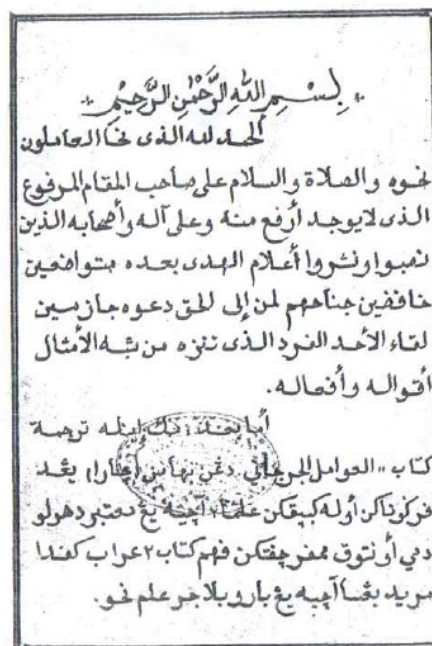 بِسْمِ اللهِ الرَّحْمٰنِ الرَّحِيْمِ
الحمد لله الذى نحا العاملون
نحوه والصلاة والسلام على صاحب المقام المرفوع
الذى لايوجد أرفع منه وعلى آله وأصحابه الذين
نصبوا ونشروا أعلام الهدى بعده متواضعين
خافضين جناحهم لمن إلى الحق دعوه جازمين
لقاء الأحد الفرد الذى تنزه من شبه الأمثال
أقواله وأفعاله.
أما بعد، اينله ترجمة
كتاب "العوامل الجرجاني دغن بهاس يڠ
دڬوناكن أوله كبيقكن علماء² آچيه يڠ معتبر دهولو
دمي أونتوق ممفرچفتكن فهم كتاب² عراب كفدا
مريد² بڠسا آچيه يڠ بارو بلاجر علم نحو.